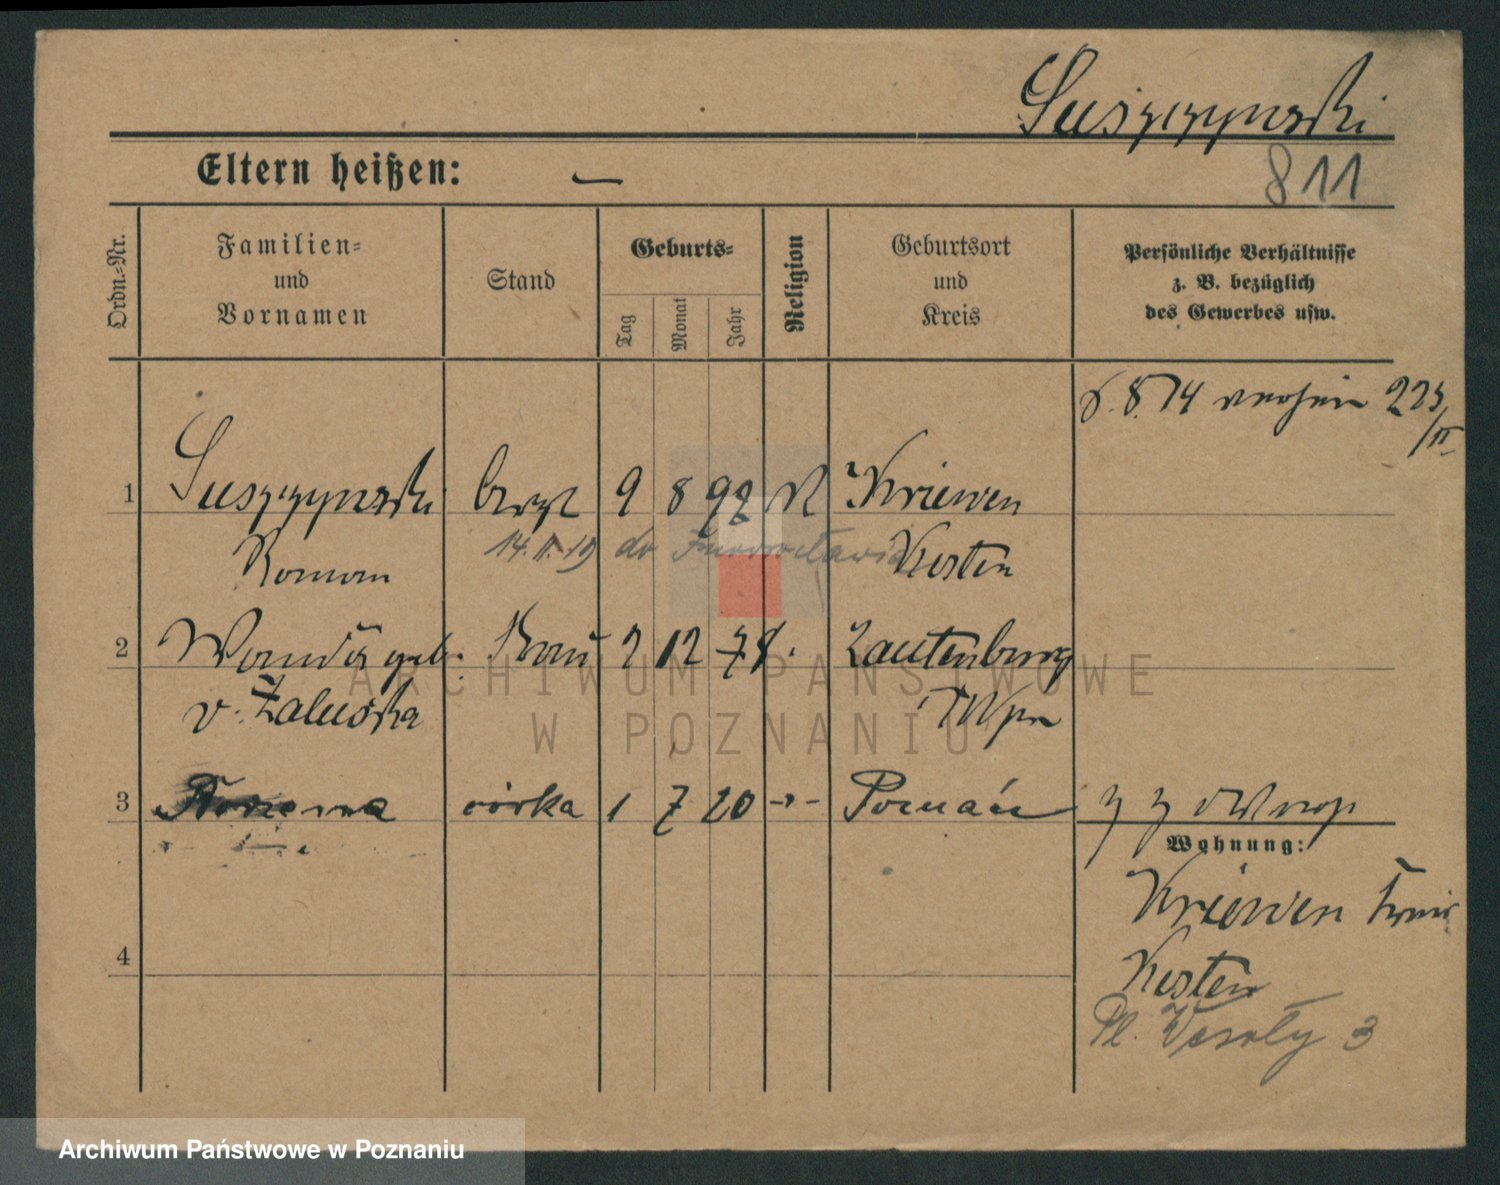 Suszczynski
811
Eltern heißen: —
Ordn.-Nr.
Familien-
und
Vornamen
Stand
Geburts-
Tag
Monat
Jahr
Religion
Geburtsort
und
Kreis
Persönliche Verhältnisse
z. B. bezüglich
des Gewerbes usw.
1 Suszczynski 9 8 92 K Kriewen
Roman Kosten
14.II.19 do Inowrocławia
2 Wanda geb. Frau 2 12 78. Lautenburg
v. Zaluska Wpr
3 córka 1 7 20 Poznań
Wohnung:
Kriewen Kreis
Kosten
4
Pl. Wesoły 3
ARCHIWUM PAŃSTWOWE
W POZNANIU
Archiwum Państwowe w Poznaniu